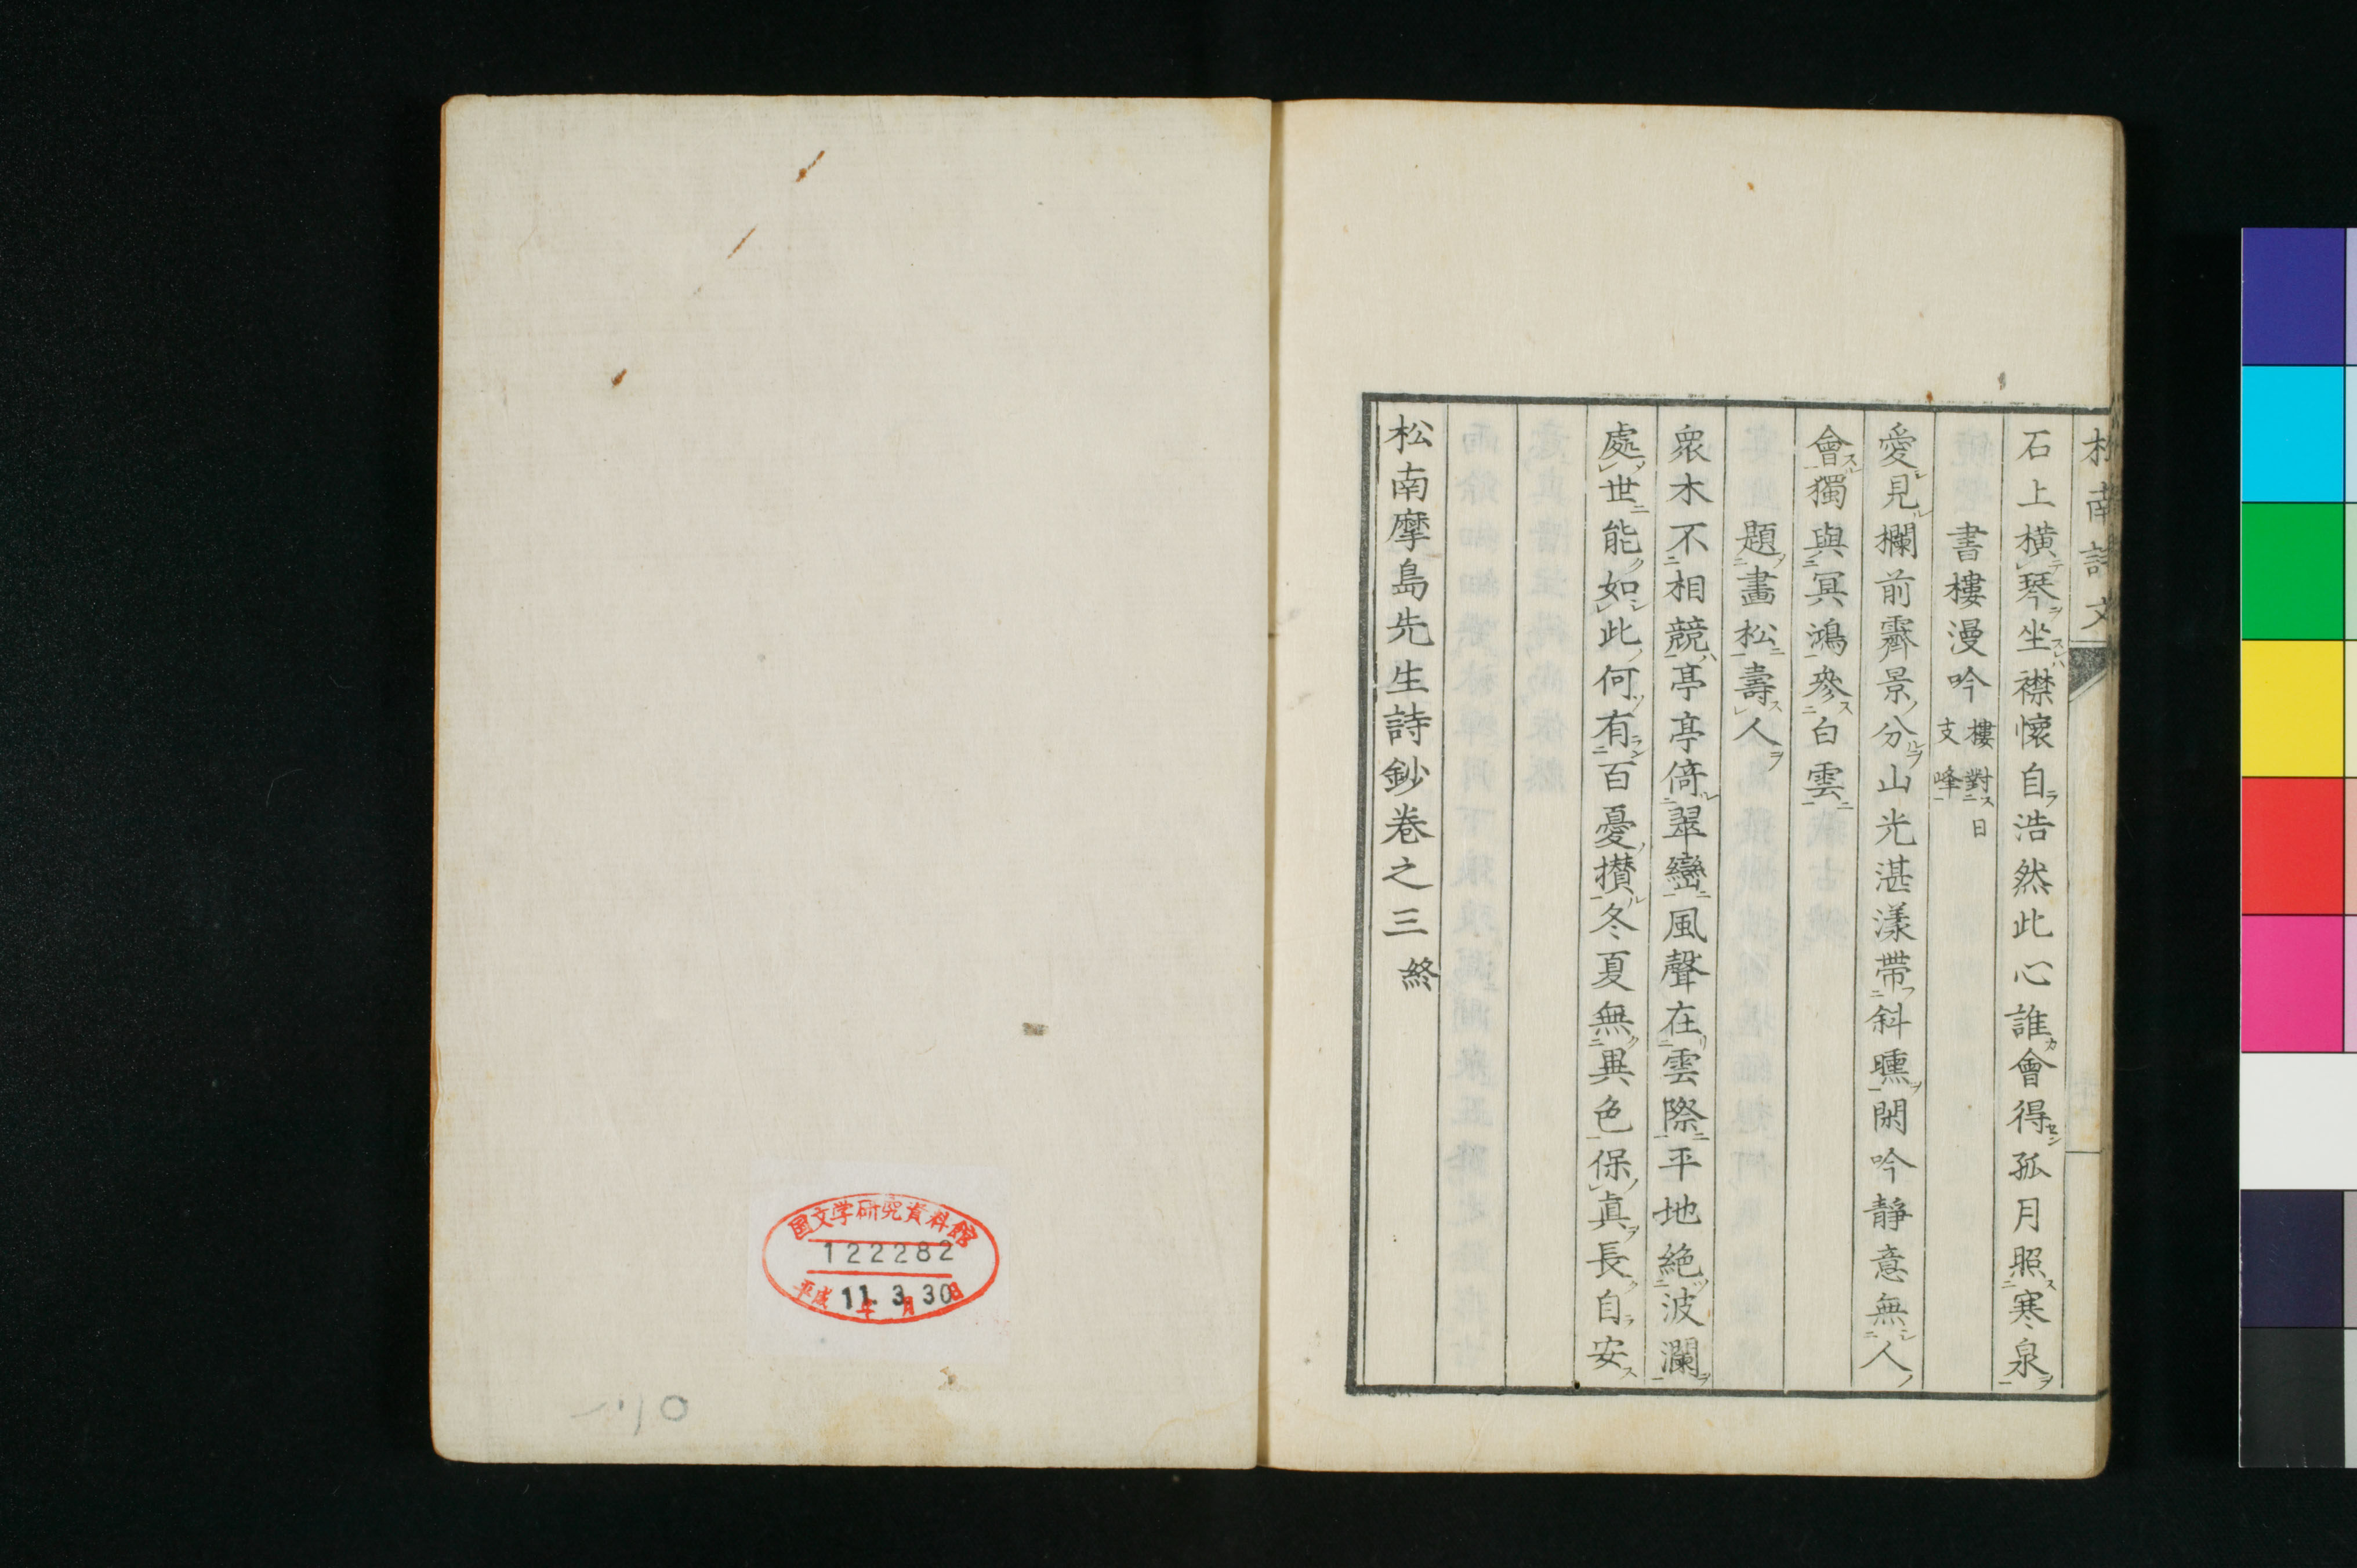 松南詩文
石上橫琴坐襟懷自浩然此心誰會得孤月照寒泉
書樓漫吟 樓對日支峰
愛見欄前霽景分山光湛漾帶斜曛閑吟靜意無人
會獨與冥鴻參白雲
題畫松壽人
衆木不相競亭亭倚翠巒風聲在雲際平地絶波瀾
處世能如此何有百憂攅冬夏無異色保真長自安
松南摩島先生詩鈔卷之三終
国文学研究資料館
122282
平成11年3月30日